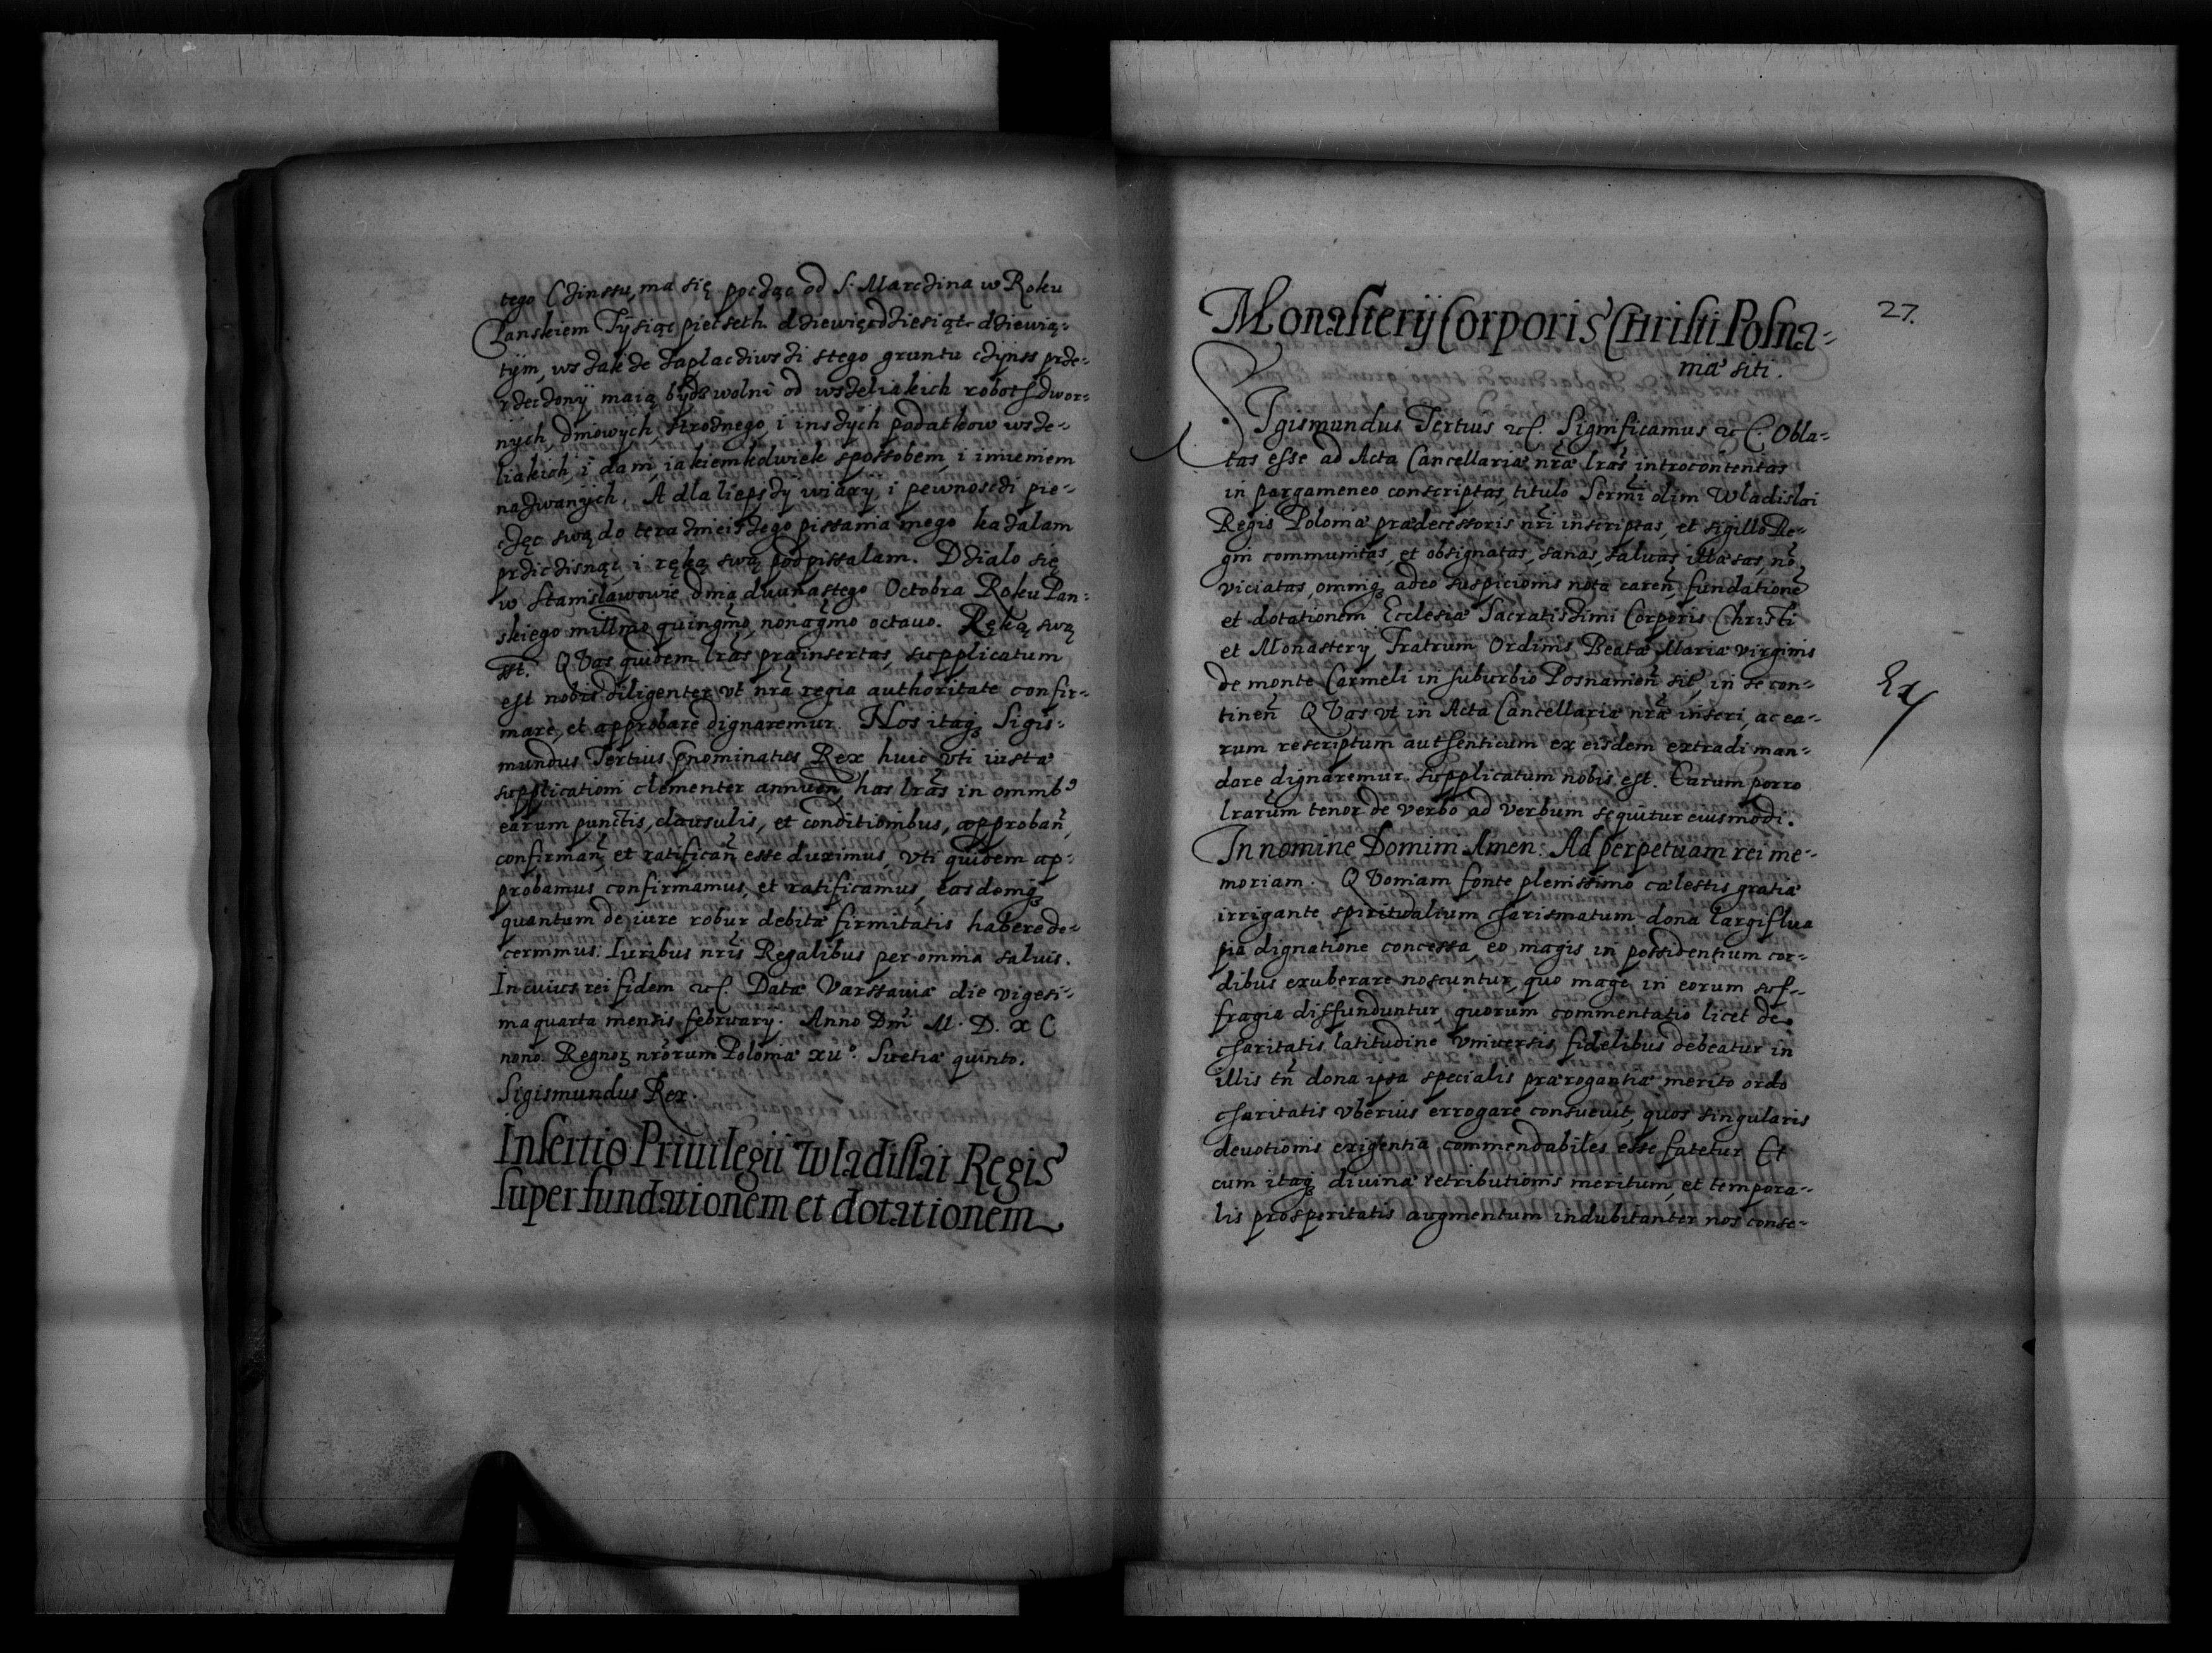 tego Czinssu, ma się począc od S. Marczina w Roku
Panskiem Tysiąc pietseth dziewięcdziesiąt dziewią-
tym, wszakże zaplacziwszi stego gruntu czynss prze-
rzeczony maią bydz wolni od wszeliakich robot sdwor-
nych, dniowych, strożnego, i inszych podatkow wsze-
liakich, i dani, iakiemkolwiek spossobem, i imieniem
nazwanych. A dla liepszy wiary, i pewnosczi pie-
częc swą do terazmeiszego pissania mego kazalam
przicisnąc, i ręką swą podpissalam. Dzialo się
w Stanislawowie dnia dwunastego Octobra Roku Pan-
skiego millmo quingmo, nonagmo octauo. Ręką swą
QVas quidem lras præinsertas, supplicatum
est nobis diligenter vt nrã regia authoritate confir-
mare, et approbare dignaremur. Nos itaq; Sigis-
mundus Tertius pnominatus Rex huic vti iustæ
supplicationi clementer annuen, has lras in omnib9
earum punctis, clausulis, et conditionibus, approban,
confirman, et ratifican esse duximus, vti quidem ap-
probamus confirmamus, et ratificamus, easdemq;
quantum de iure robur debitæ firmitatis habere de-
cernimus. Iuribus nris Regalibus per omnia saluis.
In cuius rei fidem etc. Datæ Varssauiæ die vigesi-
ma quarta mensis february. Anno Dni M. D. X C
nono. Regnor nrorum Poloniæ xii°. Suetiæ quinto.
Sigismundus Rex.
Insertio Priuilegii Wladislai Regis
super fundationem et dotationem
27.
Monasterij Corporis Christi Posna-
niæ siti.
SIgismundus Tertius etc. Significamus etc. Obla-
tas esse ad Acta Cancellariæ nræ lras introcontentas
in pargameneo conscriptas, titulo Sermi olim Wladislai
Regis Poloniæ prædecessoris nri inscriptas, et sigillo Re-
gni communitas, et obsignatas, sanas, saluas, illæsas, nõ
viciatas, omniq; adeo suspicionis nota caren, fundationẽ
et dotationem Ecclesiæ Sacratissimi Corporis Christi
et Monastery Fratrum Ordinis Beatæ Mariæ virginis
de monte Carmeli in suburbio Posnanien sit, in se con-
tinen QVas vt in Acta Cancellariæ nræ inseri, ac ea-
Ex
rum rescriptum authenticum ex eisdem extradi man-
dare dignaremur supplicatum nobis est. Earum porro
lrarum tenor de verbo ad verbum sequitur eiusmodi.
In nomine Domini Amen. Ad perpetuam rei me-
moriam. QVoniam fonte plenissimo cælestis gratiæ
irrigante spiritualium charismatum dona largiflua
pia dignatione concessa, eo magis in possidentium cor-
dibus exuberare noscuntur, quo mage in eorum suf-
fragia diffunduntur, quorum commentatio licet de
charitatis latitudine vniuersis fidelibus debeatur in
illis tn dona ipsa specialis prærogantiæ merito ordo
charitatis vberius errogare consueuit, quos singularis
deuotionis exigentia, commendabiles esse fatetur Et
cum itaq; diuinæ retributionis meritum, et tempora-
lis prosperitatis augmentum indubitanter nos conse-